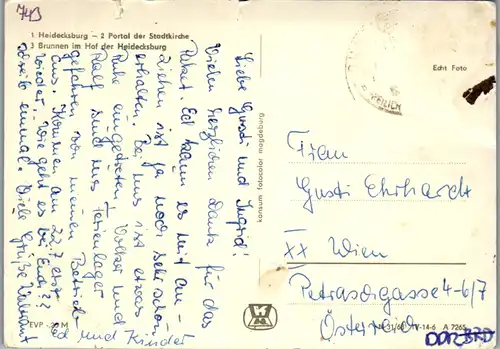 743
1 Heidecksburg – 2 Portal der Stadtkirche
3 Brunnen im Hof der Heidecksburg
Liebe Gusti und Ingrid!
Vielen herzlichen Dank für das
Paket. Ed kam es mit an-
ziehen ist ja noch sehr schön
erhalten. Bei uns ist etwas
Ruhe eingetreten. Volker und
Ralf sind ins Ferienlager
gefahren von meinem Betrieb
aus. Kommen am 22.7. erst
wieder. Wie geht es bei Euch??
Schreib einmal. Viele Grüße
Ed und Kinder
EVP -,20 M
konsum fotocolor magdeburg
Echt Foto
Frau
Gusti Ehrhardt
XX Wien
Petraschgasse 4-6/7
Österreich
IV-14-6 A 7265
DDR BRD